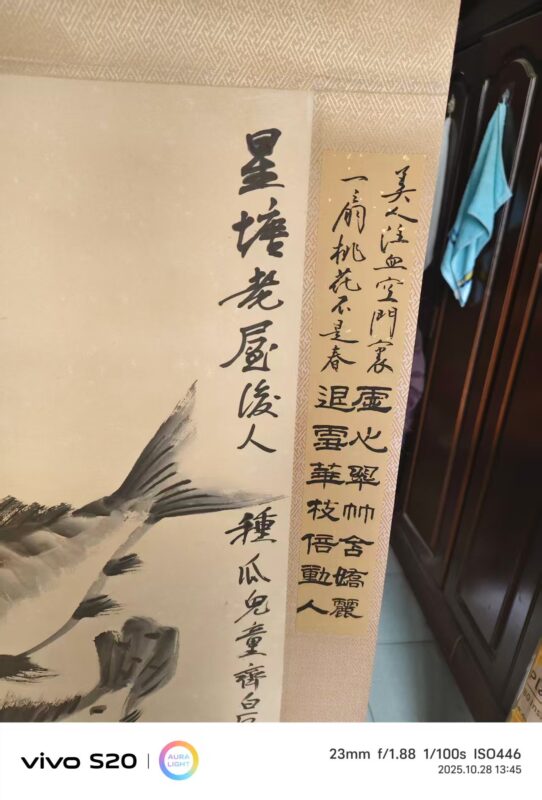 美人泣血空門裏
一扇桃花不是春
虛心翠竹含嬌麗
退雪華枝倍動人
星塘老屋後人
種瓜兒童齊白
vivo S20
AURA
LIGHT
23mm f/1.88 1/100s ISO446
2025.10.28 13:45